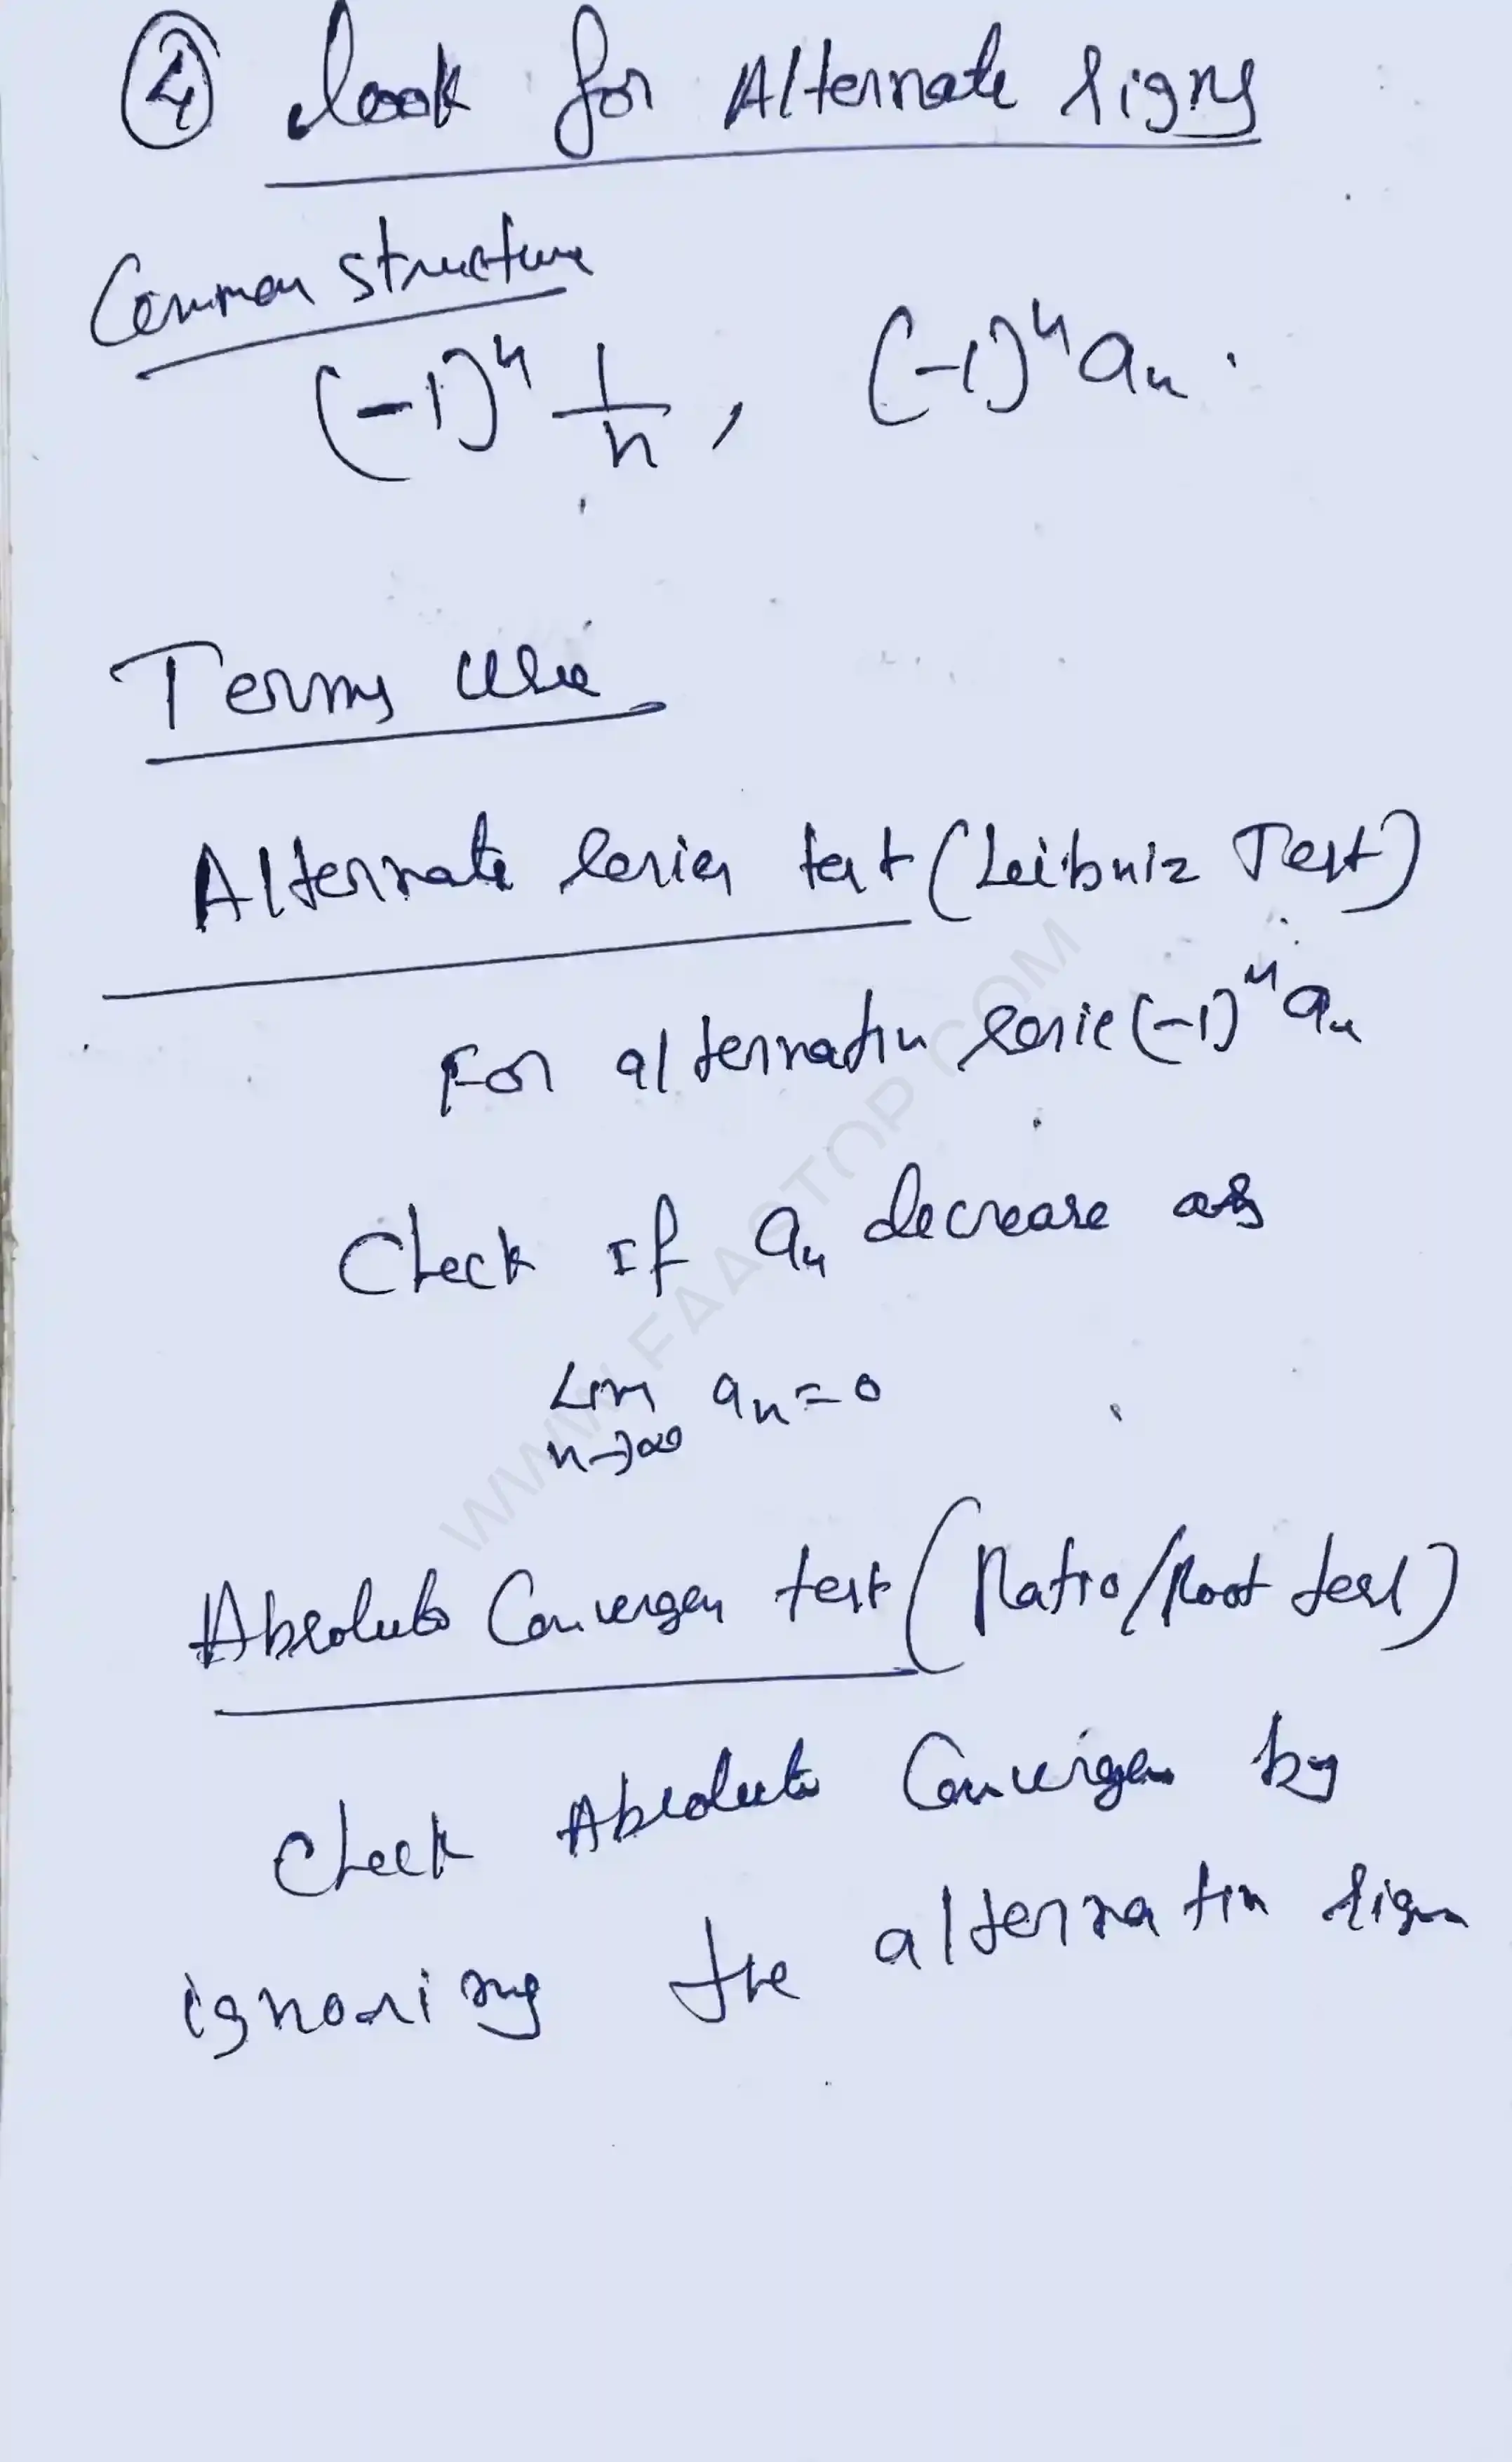 ④ Look for Alternate Signs
Common structure
(-1)^n 1/n, (-1)^n a_n.
Terms Use
Alternate Series test (Leibniz Test)
For alternatin serie (-1)^n a_n
Check If a_n decrease as
Lim n→∞ a_n = 0
Absolute Convergen test (Ratio/Root test)
Check Absolute Convergen by
ignoring the alternatin sign
WWW.FAASTOP.COM